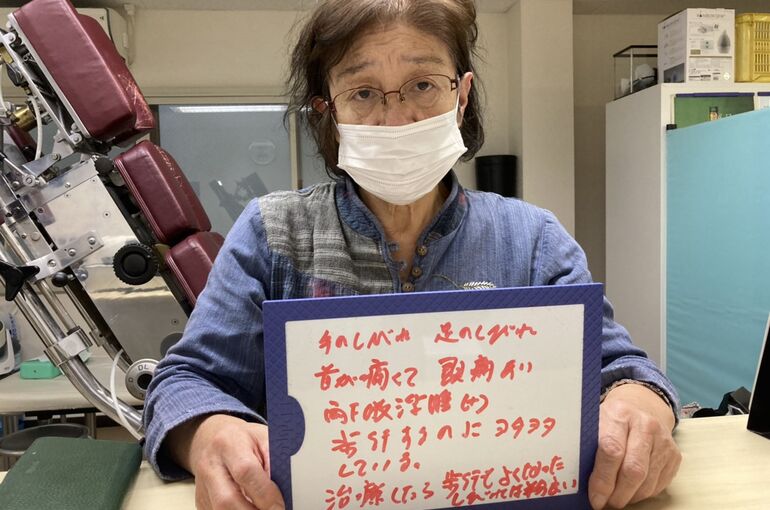 手のしびれ 足のしびれ
首が痛くて 頭痛あり
両下肢浮腫(+)
歩行するのに ヨタヨタ
している。
治療したら 歩行 よくなった